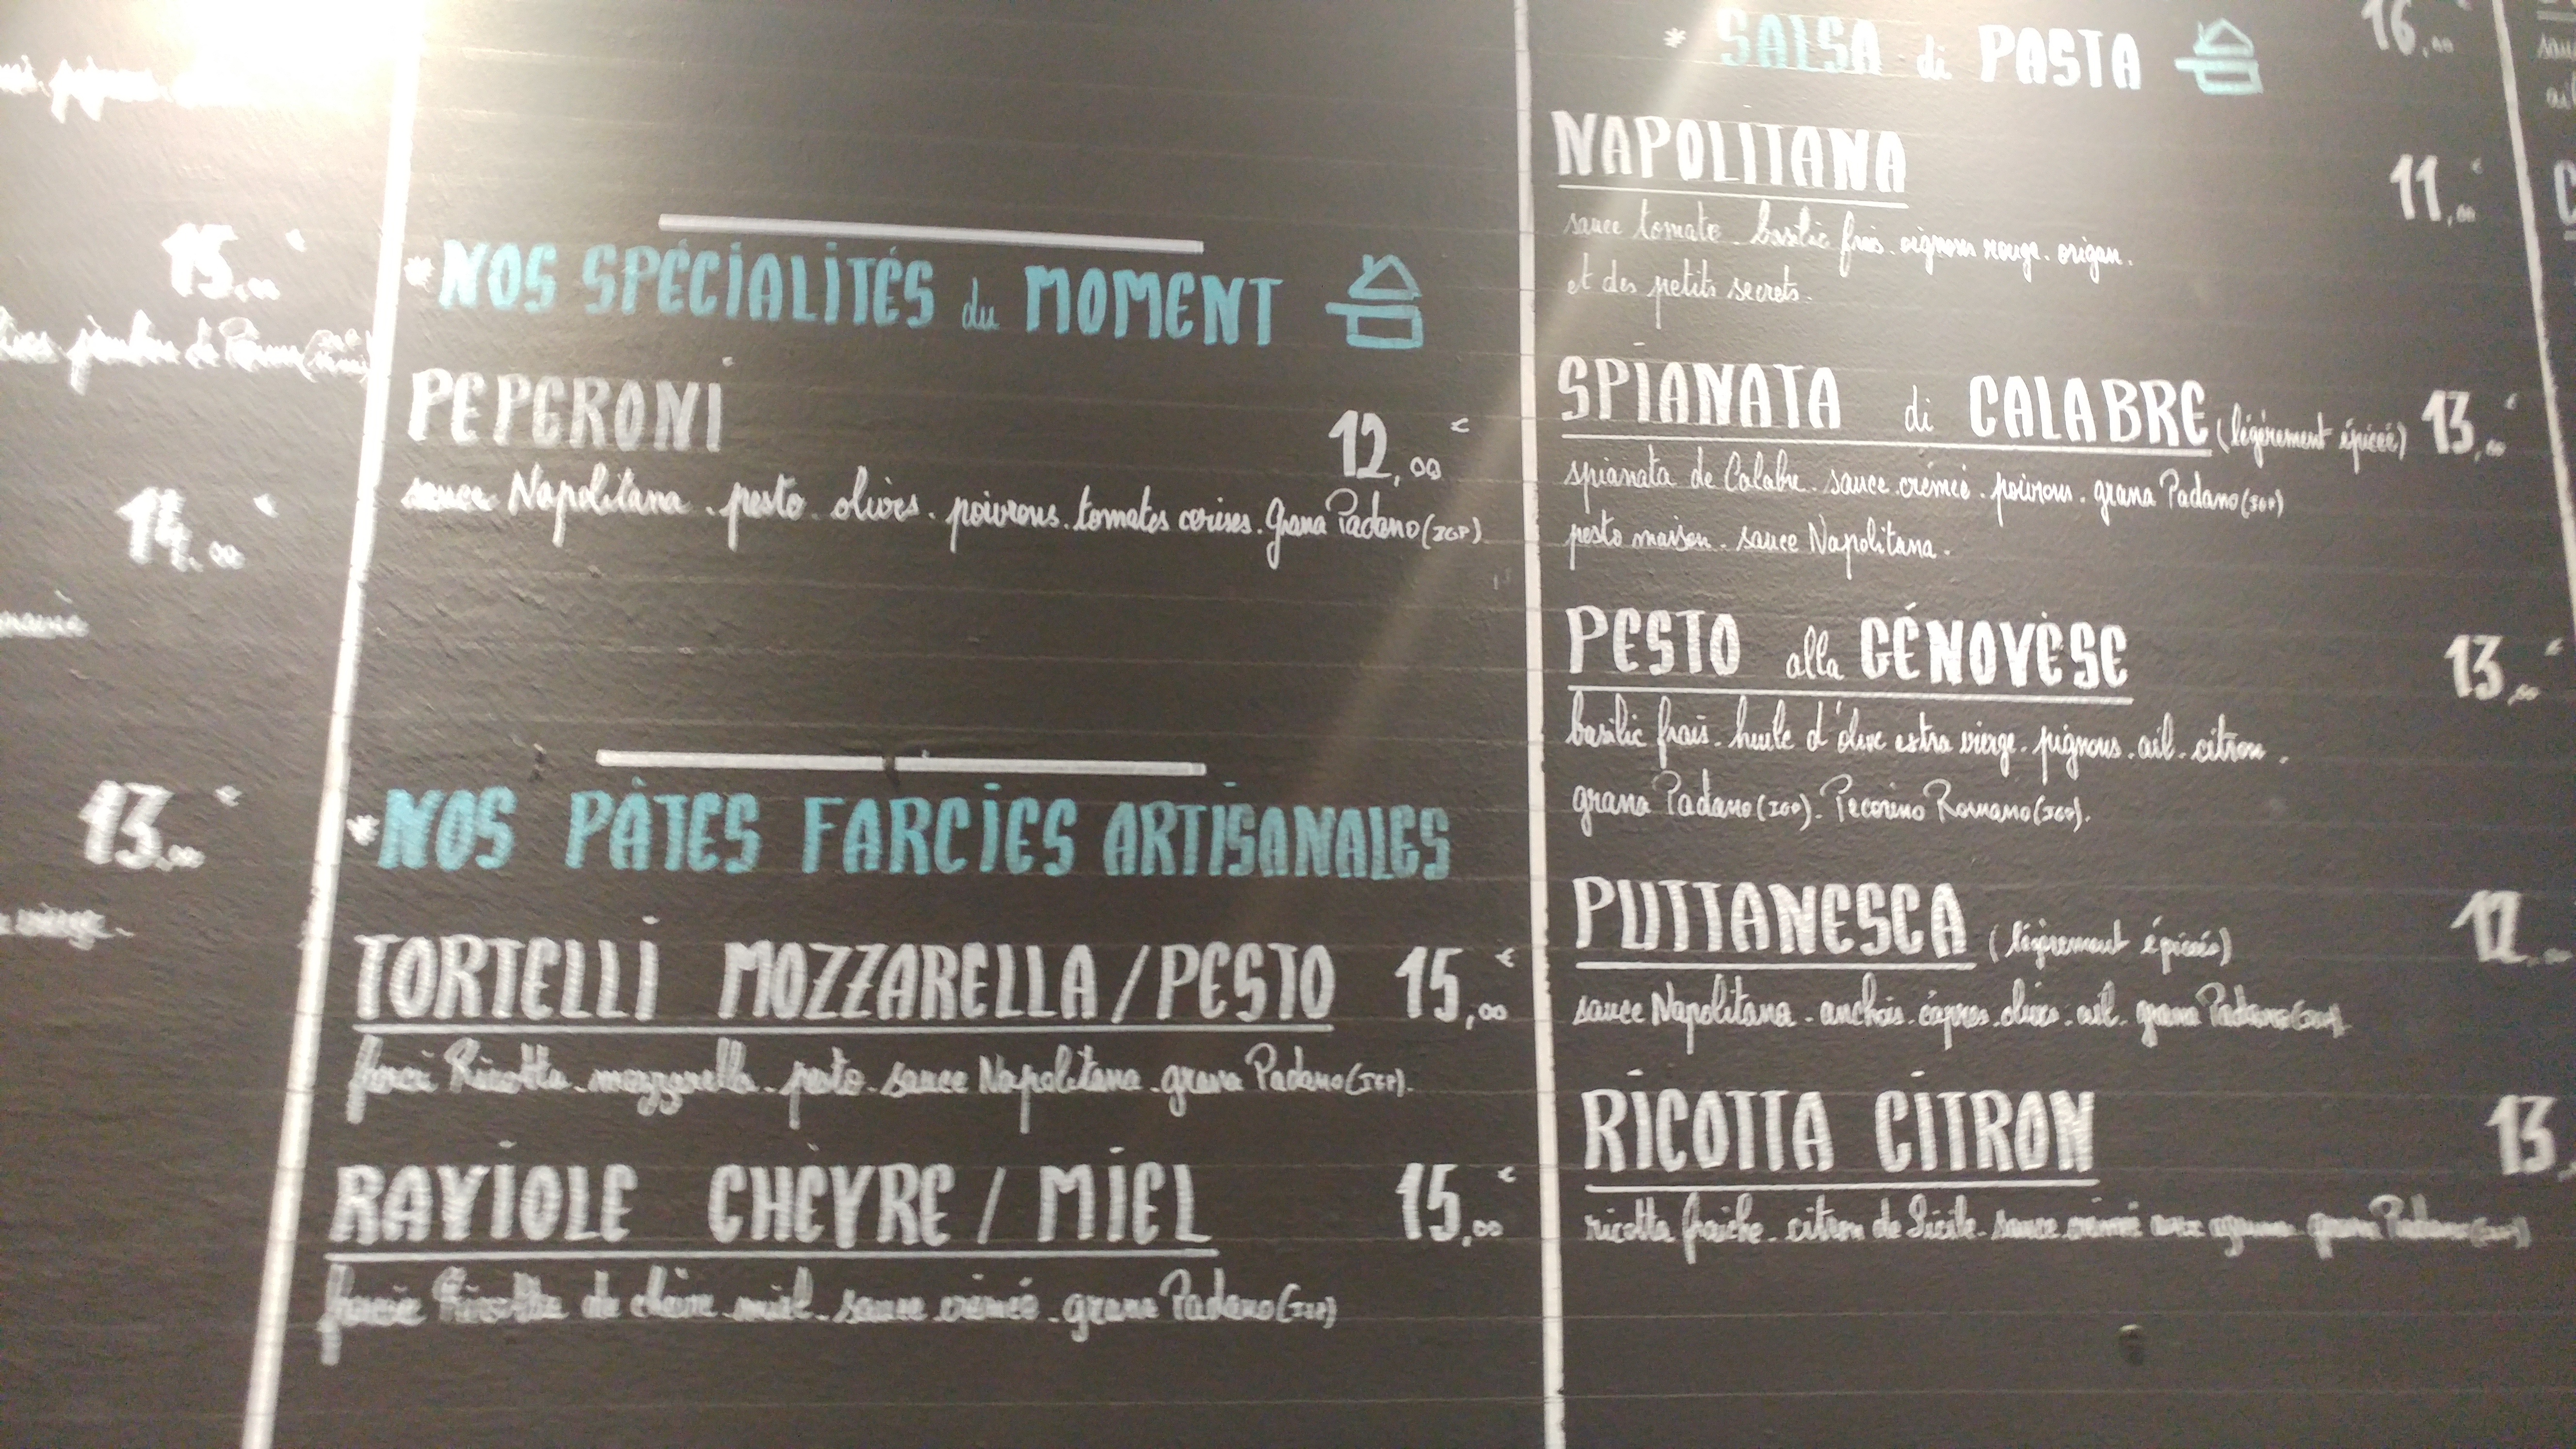 15,00 €
14,00 €
13,00 €
vierge.
* NOS SPÉCIALITÉS du MOMENT
PEPERONI 12,00 €
sauce Napolitana. pesto. olives. poivrons. tomates cerises. Grana Padano (IGP)
* NOS PÂTES FARCIES ARTISANALES
TORTELLI MOZZARELLA/PESTO 15,00 €
farci Ricotta. mozzarella. pesto. sauce Napolitana. grana Padano (IGP).
RAVIOLE CHÈVRE / MIEL 15,00 €
farcie Ricotta de chèvre. miel. sauce crémée. grana Padano (IGP)
* SALSA di PASTA
16,00
NAPOLITANA 11,00 €
sauce tomate. basilic frais. oignons rouge. origan.
et des petits secrets.
SPIANATA di CALABRE (légèrement épicée) 13,00 €
spianata de Calabre. sauce crémée. poivrons. grana Padano (IGP)
pesto maison. sauce Napolitana.
PESTO alla GÉNOVÈSE 13,00 €
basilic frais. huile d'olive extra vierge. pignons. ail. citron.
grana Padano (IGP). Pecorino Romano (IGP).
PUTTANESCA (légèrement épicés) 12,00
sauce Napolitana. anchois. câpres. olives. ail. grana Padano (IGP)
RICOTTA CITRON 13,
ricotta fraîche. citron de Sicile. sauce crémée aux agrumes. grana Padano (IGP)